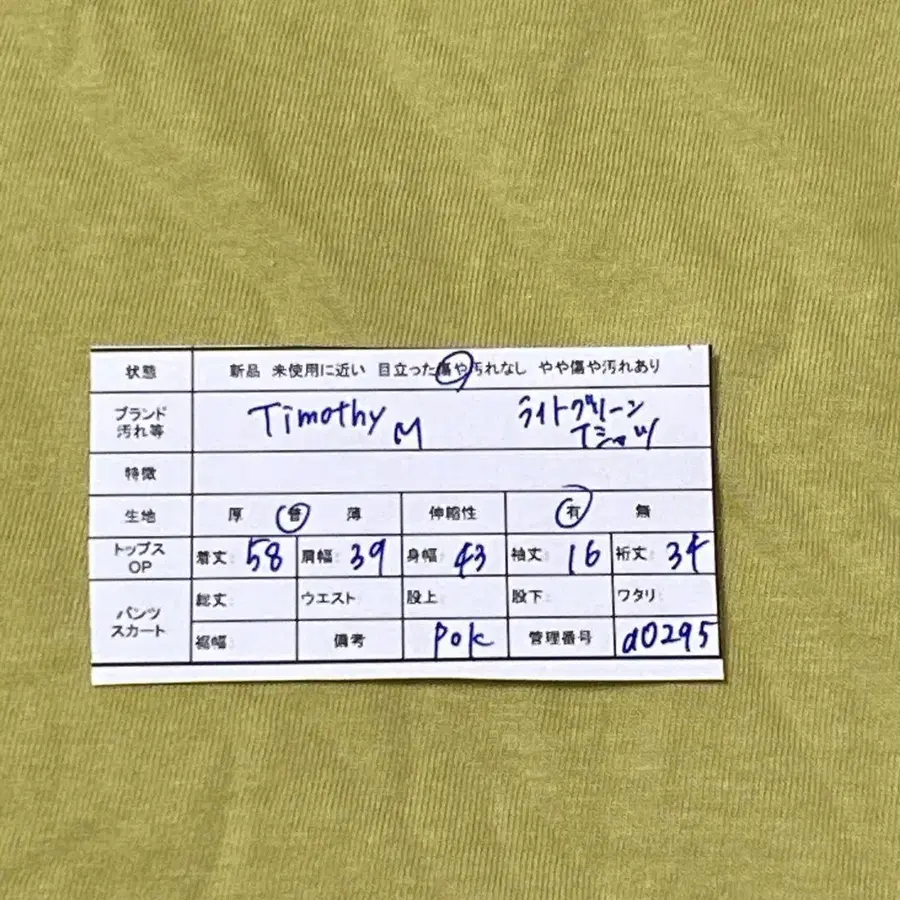 状態 新品 未使用に近い 目立った傷や汚れなし やや傷や汚れあり
ブランド 汚れ等 Timothy M ライトグリーン Tシャツ
特徴
生地 厚 普 薄 伸縮性 有 無
トップス OP 着丈: 58 肩幅: 39 身幅: 43 袖丈: 16 裄丈: 34
パンツ スカート 総丈: ウエスト: 股上: 股下: ワタリ:
裾幅: 備考 Pok 管理番号 a0295